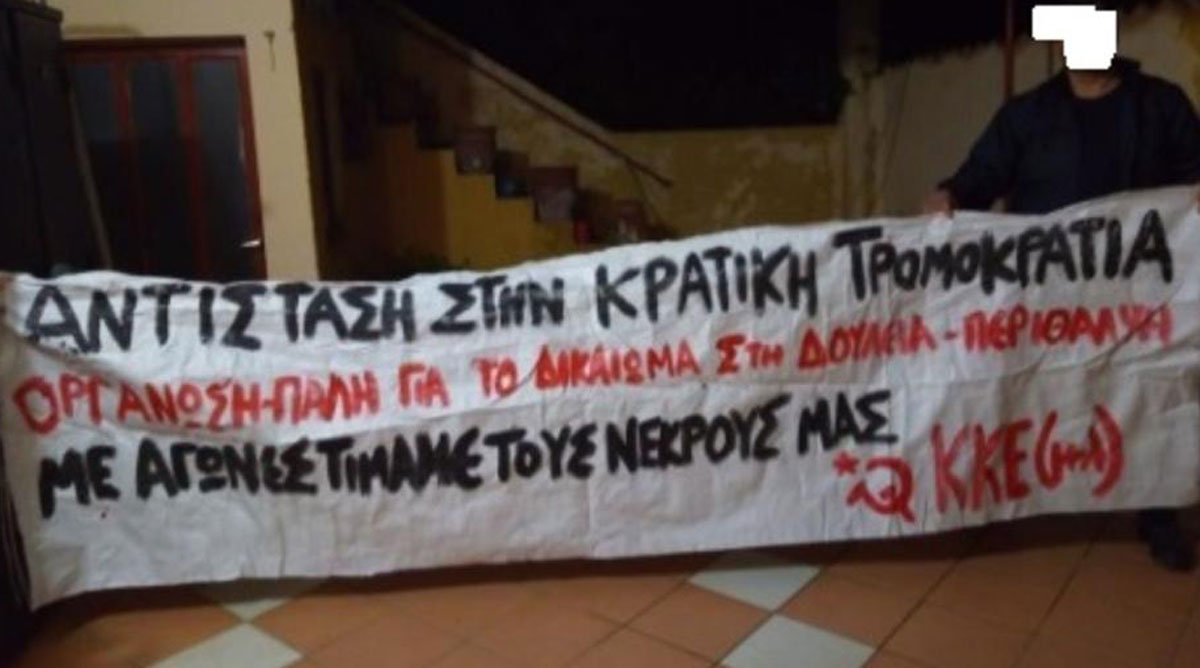 ΑΝΤΙΣΤΑΣΗ ΣΤΗΝ ΚΡΑΤΙΚΗ ΤΡΟΜΟΚΡΑΤΙΑ
ΟΡΓΑΝΩΣΗ-ΠΑΛΗ ΓΙΑ ΤΟ ΔΙΚΑΙΩΜΑ ΣΤΗ ΔΟΥΛΕΙΑ-ΠΕΡΙΘΑΛΨΗ
ΜΕ ΑΓΩΝΕΣ ΤΙΜΑΜΕ ΤΟΥΣ ΝΕΚΡΟΥΣ ΜΑΣ
ΚΚΕ(μ-λ)